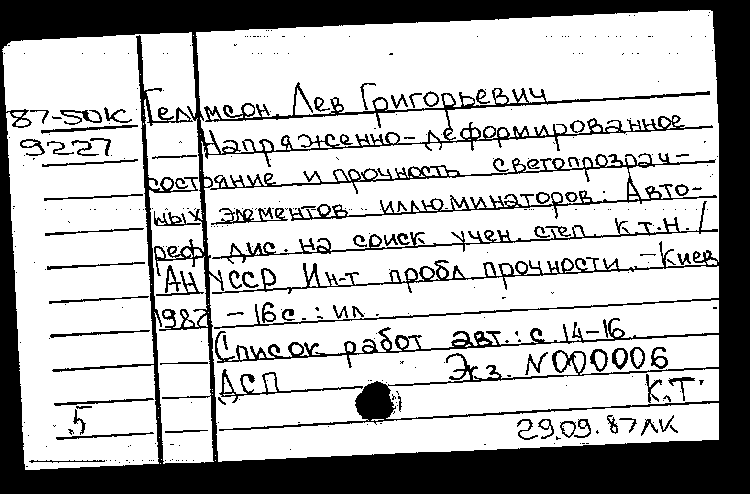 Гелимсон, Лев Григорьевич
87-50К
9227
Напряженно-деформированное
состояние и прочность светопрозрач-
ных элементов иллюминаторов: Авто-
реф. дис. на соиск. учен. степ. к.т.н. /
АН УССР, Ин-т пробл. прочности. - Киев
1987 - 16 с. : ил.
Список работ авт.: с. 14-16.
ДСП Экз. N000006
К.Т.
5
29.09.87ЛК